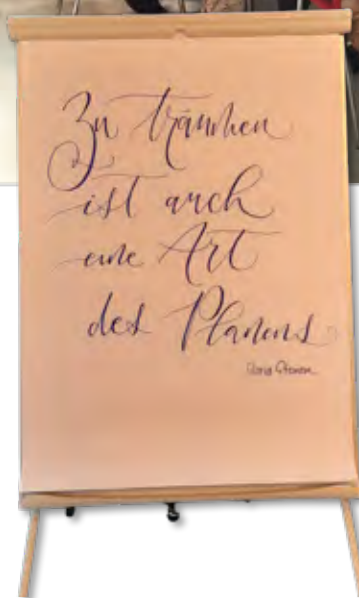 Zu träumen
ist auch
eine Art
des Planens
Gloria Steinem